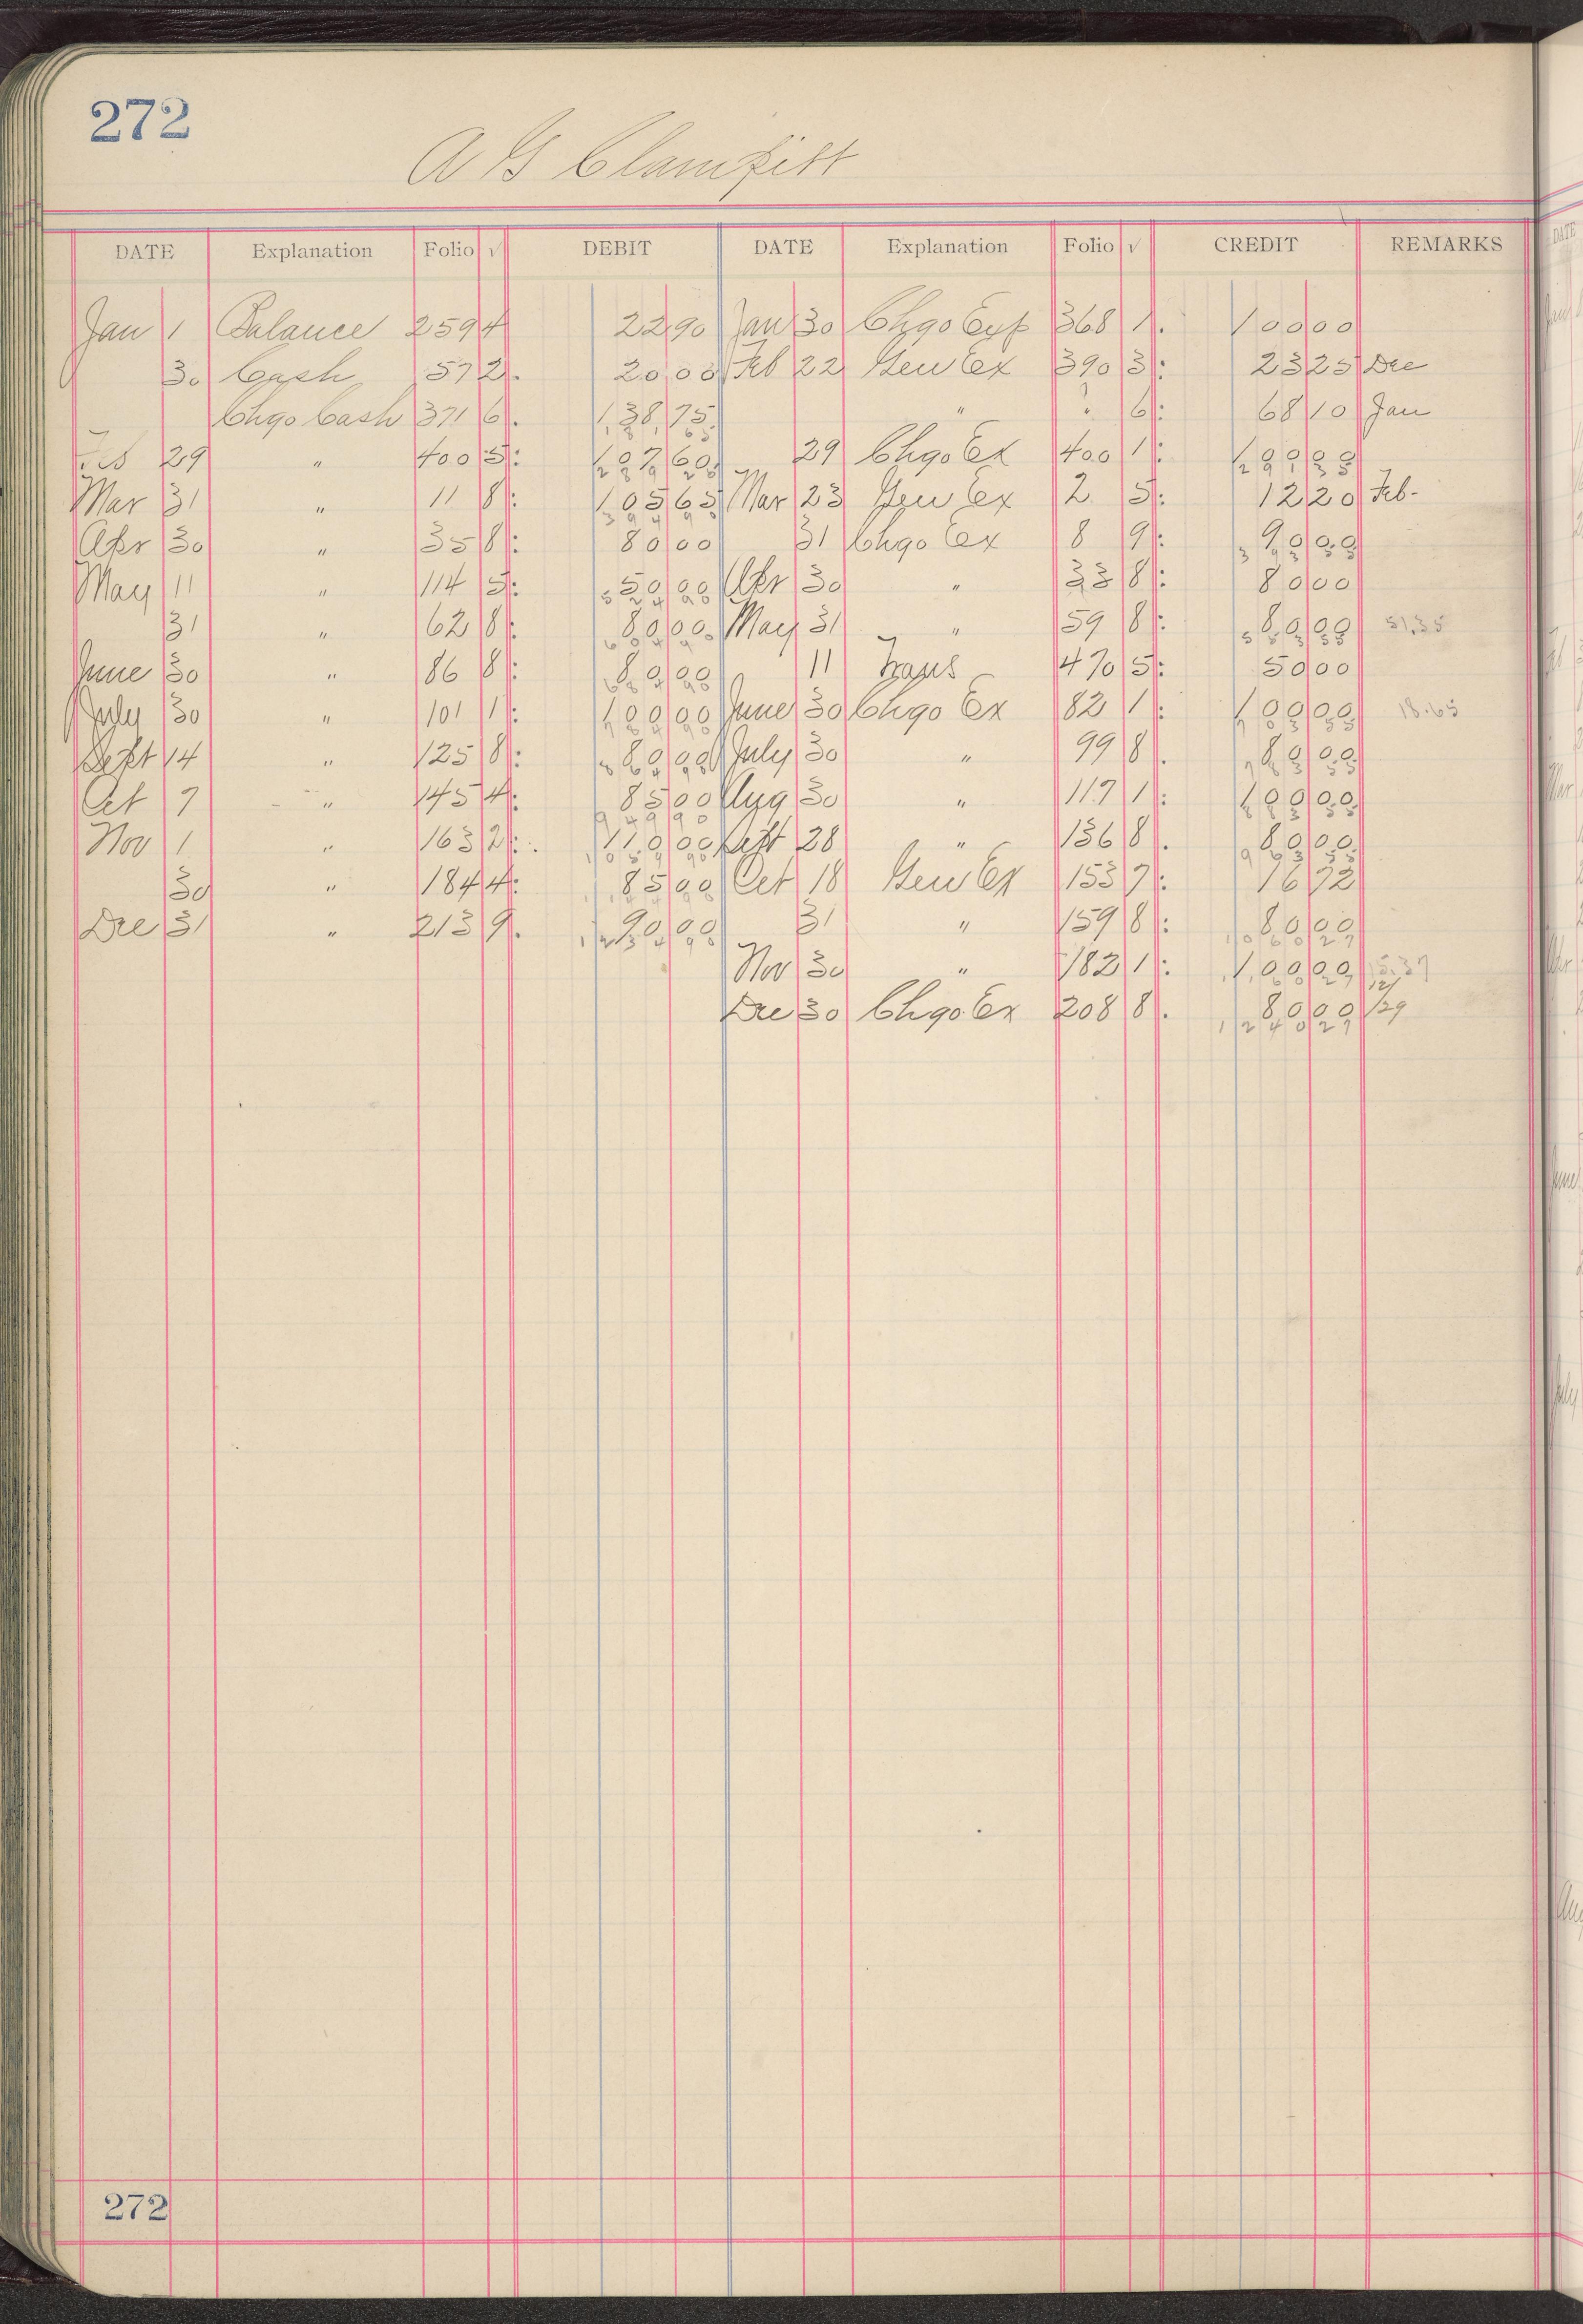 272
A G Clamfitt
DATE Explanation Folio √ DEBIT DATE Explanation Folio √ CREDIT REMARKS
Jan 1 Balance 259 4 22 90 Jan 30 Chgo Exp 368 1 100 00
30 Cash 57 2 20 00 Feb 22 Gen Ex 390 3 23 25 Dec
Chgo Cash 371 6 138 75 " " 6 68 10 Jan
Feb 29 " 400 5 107 60 29 Chgo Ex 400 1
Mar 31 " 11 8 105 65 Mar 23 Gen Ex 2 5 12 20 Feb.
Apr 30 " 35 8 80 00 31 Chgo Ex 8 9 90 00
May 11 " 114 5 50 00 Apr 30 " 33 8 80 00
31 " 62 8 80 00 May 31 " 59 8 80 00 51.35
June 30 " 86 8 80 00 11 Trans 470 5 50 00
July 30 " 101 1 100 00 June 30 Chgo Ex 82 1 100 00 18.65
Sept 14 " 125 8 80 00 July 30 " 99 8 80 00
Oct 7 " 145 4 85 00 Aug 30 " 117 1 100 00
Nov 1 " 163 2 110 00 Sept 28 " 136 8 80 00
30 " 184 4 85 00 Oct 18 Gen Ex 153 7 16 72
Dec 31 " 213 9 90 00 31 " 159 8 80 00
Nov 30 " 182 1 100 00
Dec 30 Chgo Ex 208 8 80 00 12/29
272